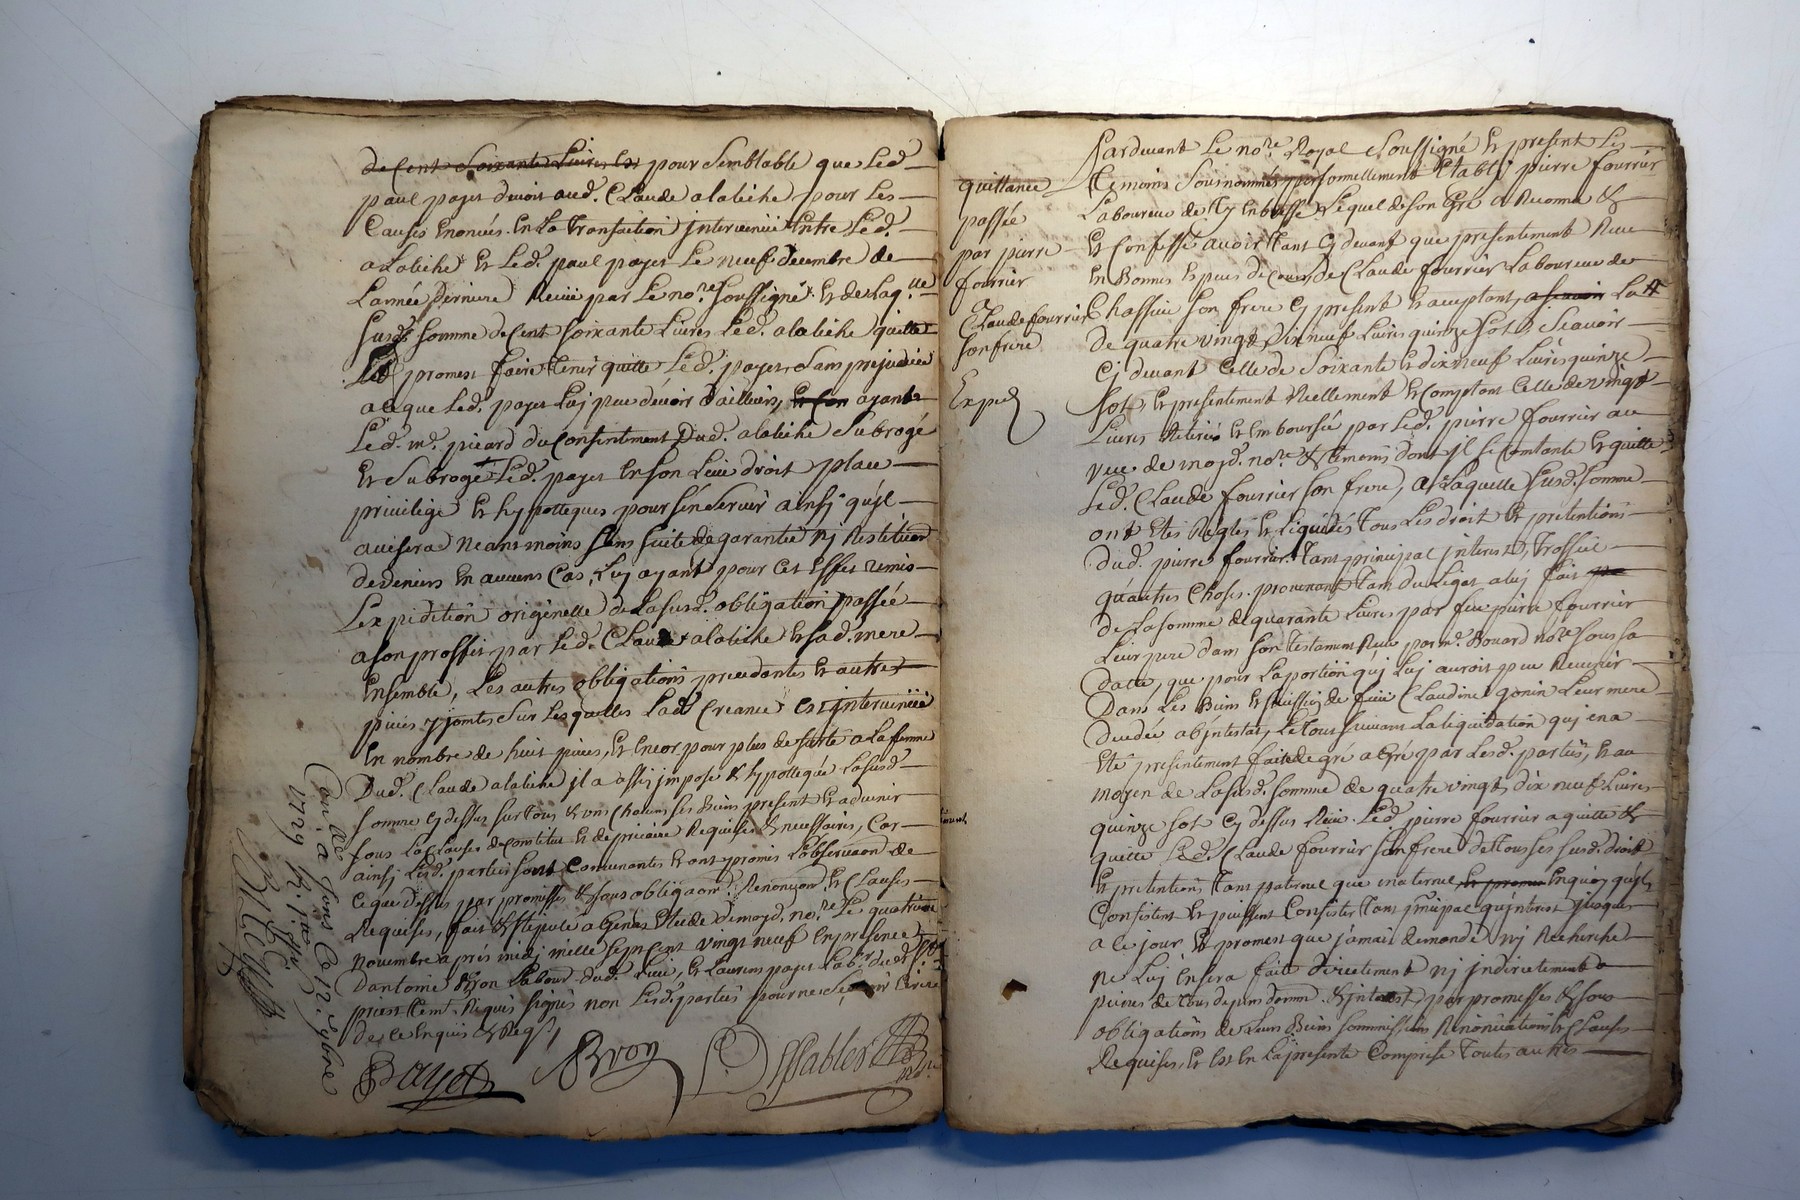 de Cent Soixante Livres Et pour Semblable que Led.
paul payet devoit aud. Claude alabiche pour Les
Causes Enoncées En La Transaction intervenüe Entre Led.
alabiche Et Led. paul payet Le neuf decembre de
Lannée Derniere Receüe par Le no.re Soussigné Et de Laq.lle
Susd. Somme de Cent Soixante Livres Led. alabiche quitte
promest faire Tenir quitte Led. payet Sans prejudice
a ce que Led. payet Luy peut devoir d'ailleurs, Et Con ayant
Led. m.e picard du Consentement Dud. alabiche Subrogé
Et Subroge Led. payet En Son Lieu droit place
privilege Et hypotteques pour s'en Servir ainsy qu'il
avisera Neantmoins Sans Suite de garantie Ny Restitution
de deniers En aucuns Cas, Luy ayant pour Cet Effet remis
L'expedition originelle de La Susd. obligation passée
a Son proffit par Led. Claude alabiche Et Sa d. mere
Ensemble, Les autres obligations precedantes Et autres
pieces y jointes Sur Lesquelles Lad. Creance Est intervenüe
En nombre de huit pieces, Et Encor pour plus de Surté a La forme
Dud. Claude alabiche il a assis imposé & hypottequé La Susd.
Somme Cy dessus Sur Tous & uns Chacuns Ses Biens present Et advenir
Sous La Clauses de Constitut Et de précaire Requises & necessaires, Car
ainsy Lesd. parties Sont Convenantes Et ont promis L'observaon de
Ce que Dessus par promisses & Sous obligaons Renonçaon Et Clauses
Requises, fait & Stipulé a Etude de moyd. no.re Le quatrieme
Novembre aprés midy mille Sept Cent vingt neuf En presence
D'antoine Bron Labour. dud. Lieu, Et Laurens payet Lab.r
priés Tem. Requis Signés non Lesd. parties pour ne Scavoir Ecrire
de ce Enquis & Reqs./.
Payet Bron
Con.lé
a
Ce 12. 9bre
1729
quittance
passée
par pierre
fourrier
a
Claude fourrier
Son frere
Exped
Pardevant Le no.re Royal Soussigné Et present Les
Temoins Sousnommés personnellement Etably pierre fourrier
Laboureur de Lequel de Son Gré a Reconnu &
Et Confessé avoir Tant Cy devant que presentement Receu
En Bonnes Especes de Cours de Claude fourrier Laboureur de
Chassieu Son frere Cy present Et acceptant, a Scavoir La
de quatre vingt Dix neuf Livres quinze Sols Scavoir
Cy devant Celle de Soixante Et dix neuf Livres quinze
Sols, Et presentement Reellement Et Comptant Celle de vingt
Livres Retirée Et Emboursée par Led. pierre fourrier au
veu de moyd. no.re & temoins dont il Se Contante Et quitte
Led. Claude fourrier Son frere, a Laquelle Susd. Somme
ont Etés Reglés Et Liquidés Tous Les droit Et pretentions
Dud. pierre fourrier Tant principal interest,
qu'autres Choses provenant Tant du Legat a luy fait
de La Somme de quarante Livres par feu pierre fourrier
Leur pere dans Son Testament Receu par m.e Bouard no.re Sous Sa
datte, que pour La portion qui Luy auroit peu Revenir
Dans Les Biens Et Succession de feüe Claudine gonin Leur mere
Decedée abjntestat, Le Tout Suivant La liquidation qui En a
Eté presentement faite de gré a Gré par Lesd. parties, Et au
moyen de La Susd. Somme de quatre vingt dix neuf Livres
quinze Sols Cy dessus Receüe Led. pierre fourrier a quitté &
quitte Led. Claude fourrier Son frere de Tous Ses Susd. droit
Et pretentions Tant paternel que maternel Et promes En quoy qu'ils
Consistent Et puissent Consister Tant principal qu'interest jusques
a Ce jour Et promest que jamais demande Ny Recherche
Ne Luy En Sera faite directement Ny indirectement a
peines de Tous depens domm. & interest par promesses & Sous
obligations de Leurs Biens Sommissions Renonciations & Clauses
Requises, Et Est En La presente Comprise Toutes autres